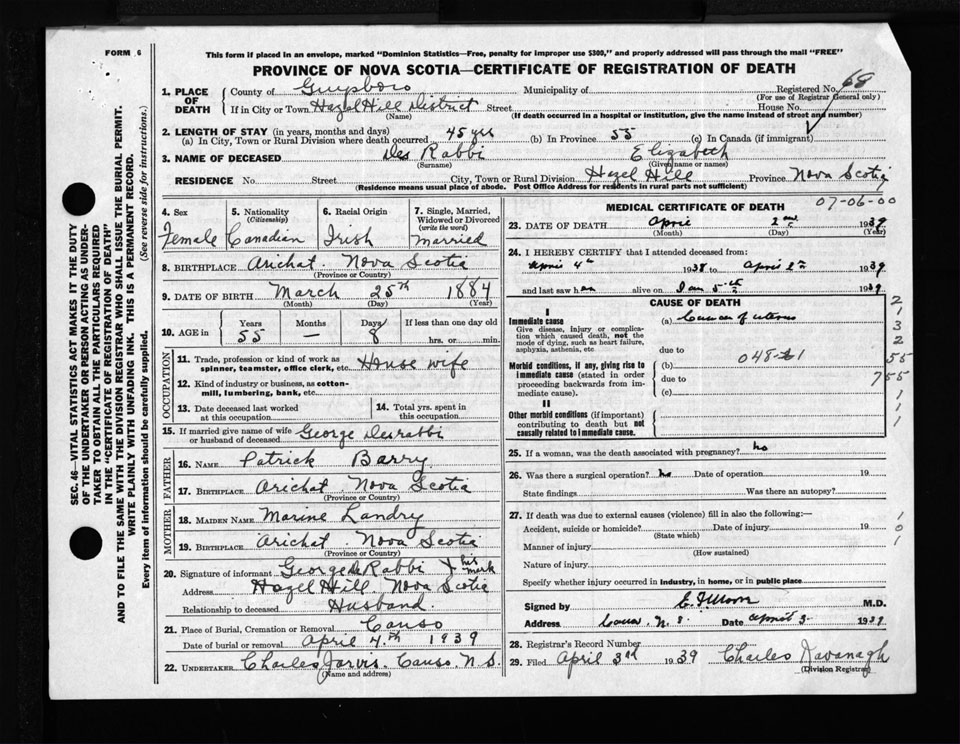 FORM 6
This form if placed in an envelope, marked "Dominion Statistics—Free, penalty for improper use $300," and properly addressed will pass through the mail "FREE"
PROVINCE OF NOVA SCOTIA—CERTIFICATE OF REGISTRATION OF DEATH
1. PLACE OF DEATH County of Guysboro Municipality of Registered No. 68
(For use of Registrar General only)
If in City or Town Hazel Hill District Street House No.
(Name) (If death occurred in a hospital or institution, give the name instead of street and number)
2. LENGTH OF STAY (in years, months and days)
(a) In City, Town or Rural Division where death occurred 45 yrs (b) In Province 55 (c) In Canada (if immigrant)
3. NAME OF DECEASED Des Rabbi Elizabeth
(Surname) (Given name or names)
RESIDENCE No. Street City, Town or Rural Division Hazel Hill Province Nova Scotia
(Residence means usual place of abode. Post Office Address for residents in rural parts not sufficient)
4. Sex Female
5. Nationality (Citizenship) Canadian
6. Racial Origin Irish
7. Single, Married, Widowed or Divorced (write the word) Married
8. BIRTHPLACE Arichat Nova Scotia
(Province or Country)
9. DATE OF BIRTH March 25th 1884
(Month) (Day) (Year)
10. AGE in Years Months Days If less than one day old
55 — 8 hrs. or min.
OCCUPATION
11. Trade, profession or kind of work as spinner, teamster, office clerk, etc. House wife
12. Kind of industry or business, as cotton-mill, lumbering, bank, etc.
13. Date deceased last worked at this occupation
14. Total yrs. spent in this occupation
15. If married give name of wife or husband of deceased George Desrabbi
FATHER
16. NAME Patrick Barry
17. BIRTHPLACE Arichat Nova Scotia
(Province or Country)
MOTHER
18. MAIDEN NAME Marine Landry
19. BIRTHPLACE Arichat Nova Scotia
(Province or Country)
20. Signature of informant George De Rabbi X his mark
Address Hazel Hill Nova Scotia
Relationship to deceased Husband
21. Place of Burial, Cremation or Removal Canso
Date of burial or removal April 4th 1939
22. UNDERTAKER Charles Jarvis Canso N S
(Name and address)
MEDICAL CERTIFICATE OF DEATH
07-06-00
23. DATE OF DEATH April 2nd 1939
(Month) (Day) (Year)
24. I HEREBY CERTIFY that I attended deceased from:
April 4th 1938 to April 2nd 1939
and last saw her alive on 1939
CAUSE OF DEATH
I
Immediate cause
Give disease, injury or complication which caused death, not the mode of dying, such as heart failure, asphyxia, asthenia, etc
(a) Cancer of uterus
due to
Morbid conditions, if any, giving rise to immediate cause (stated in order proceeding backwards from immediate cause).
(b)
due to
(c)
II
Other morbid conditions (if important) contributing to death but not causally related to immediate cause.
2
1
3
2
55
755
1
1
1
25. If a woman, was the death associated with pregnancy? no
26. Was there a surgical operation? no Date of operation 19
State findings Was there an autopsy?
27. If death was due to external causes (violence) fill in also the following:—
Accident, suicide or homicide? Date of injury 19
(State which)
Manner of injury
(How sustained)
Nature of injury
Specify whether injury occurred in industry, in home, or in public place
1
0
1
Signed by M.D.
Address Canso N. S. Date April 3 1939
28. Registrar's Record Number
29. Filed April 3rd 1939 Charles Kavanagh
(Division Registrar)
SEC. 46—VITAL STATISTICS ACT MAKES IT THE DUTY
OF THE UNDERTAKER OR PERSON ACTING AS UNDER-
TAKER TO OBTAIN ALL THE PARTICULARS REQUIRED
IN THE "CERTIFICATE OF REGISTRATION OF DEATH"
AND TO FILE THE SAME WITH THE DIVISION REGISTRAR WHO SHALL ISSUE THE BURIAL PERMIT.
WRITE PLAINLY WITH UNFADING INK. THIS IS A PERMANENT RECORD.
Every item of information should be carefully supplied. (See reverse side for instructions.)